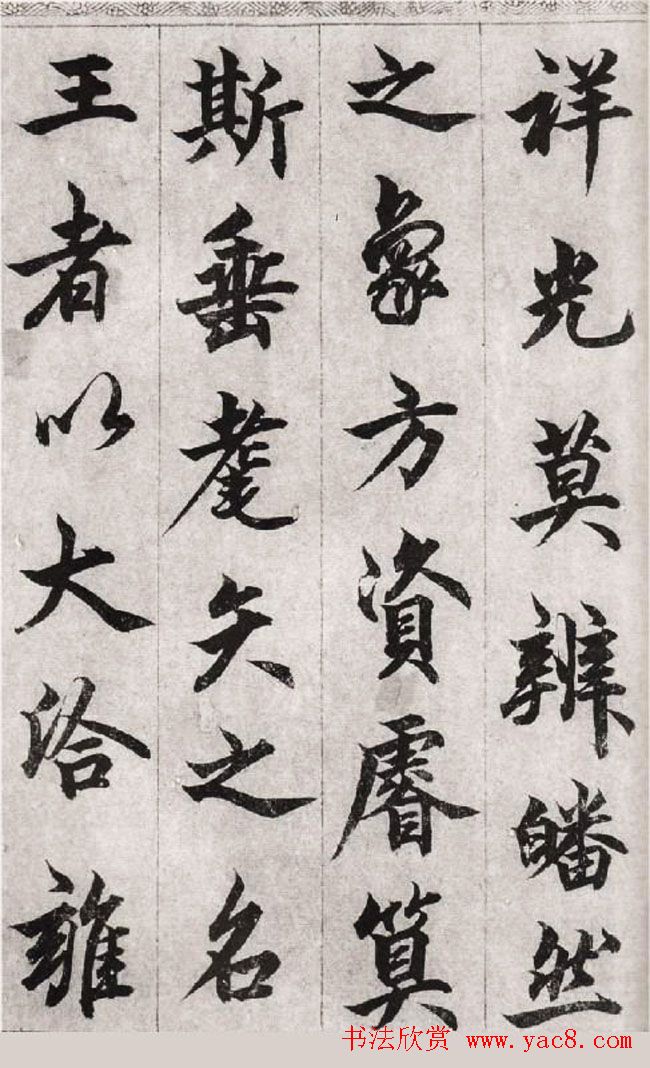 祥光莫辨皤然
之象方資睿算
斯垂耄矣之名
王者以大洽雍
书法欣赏 www.yac8.com